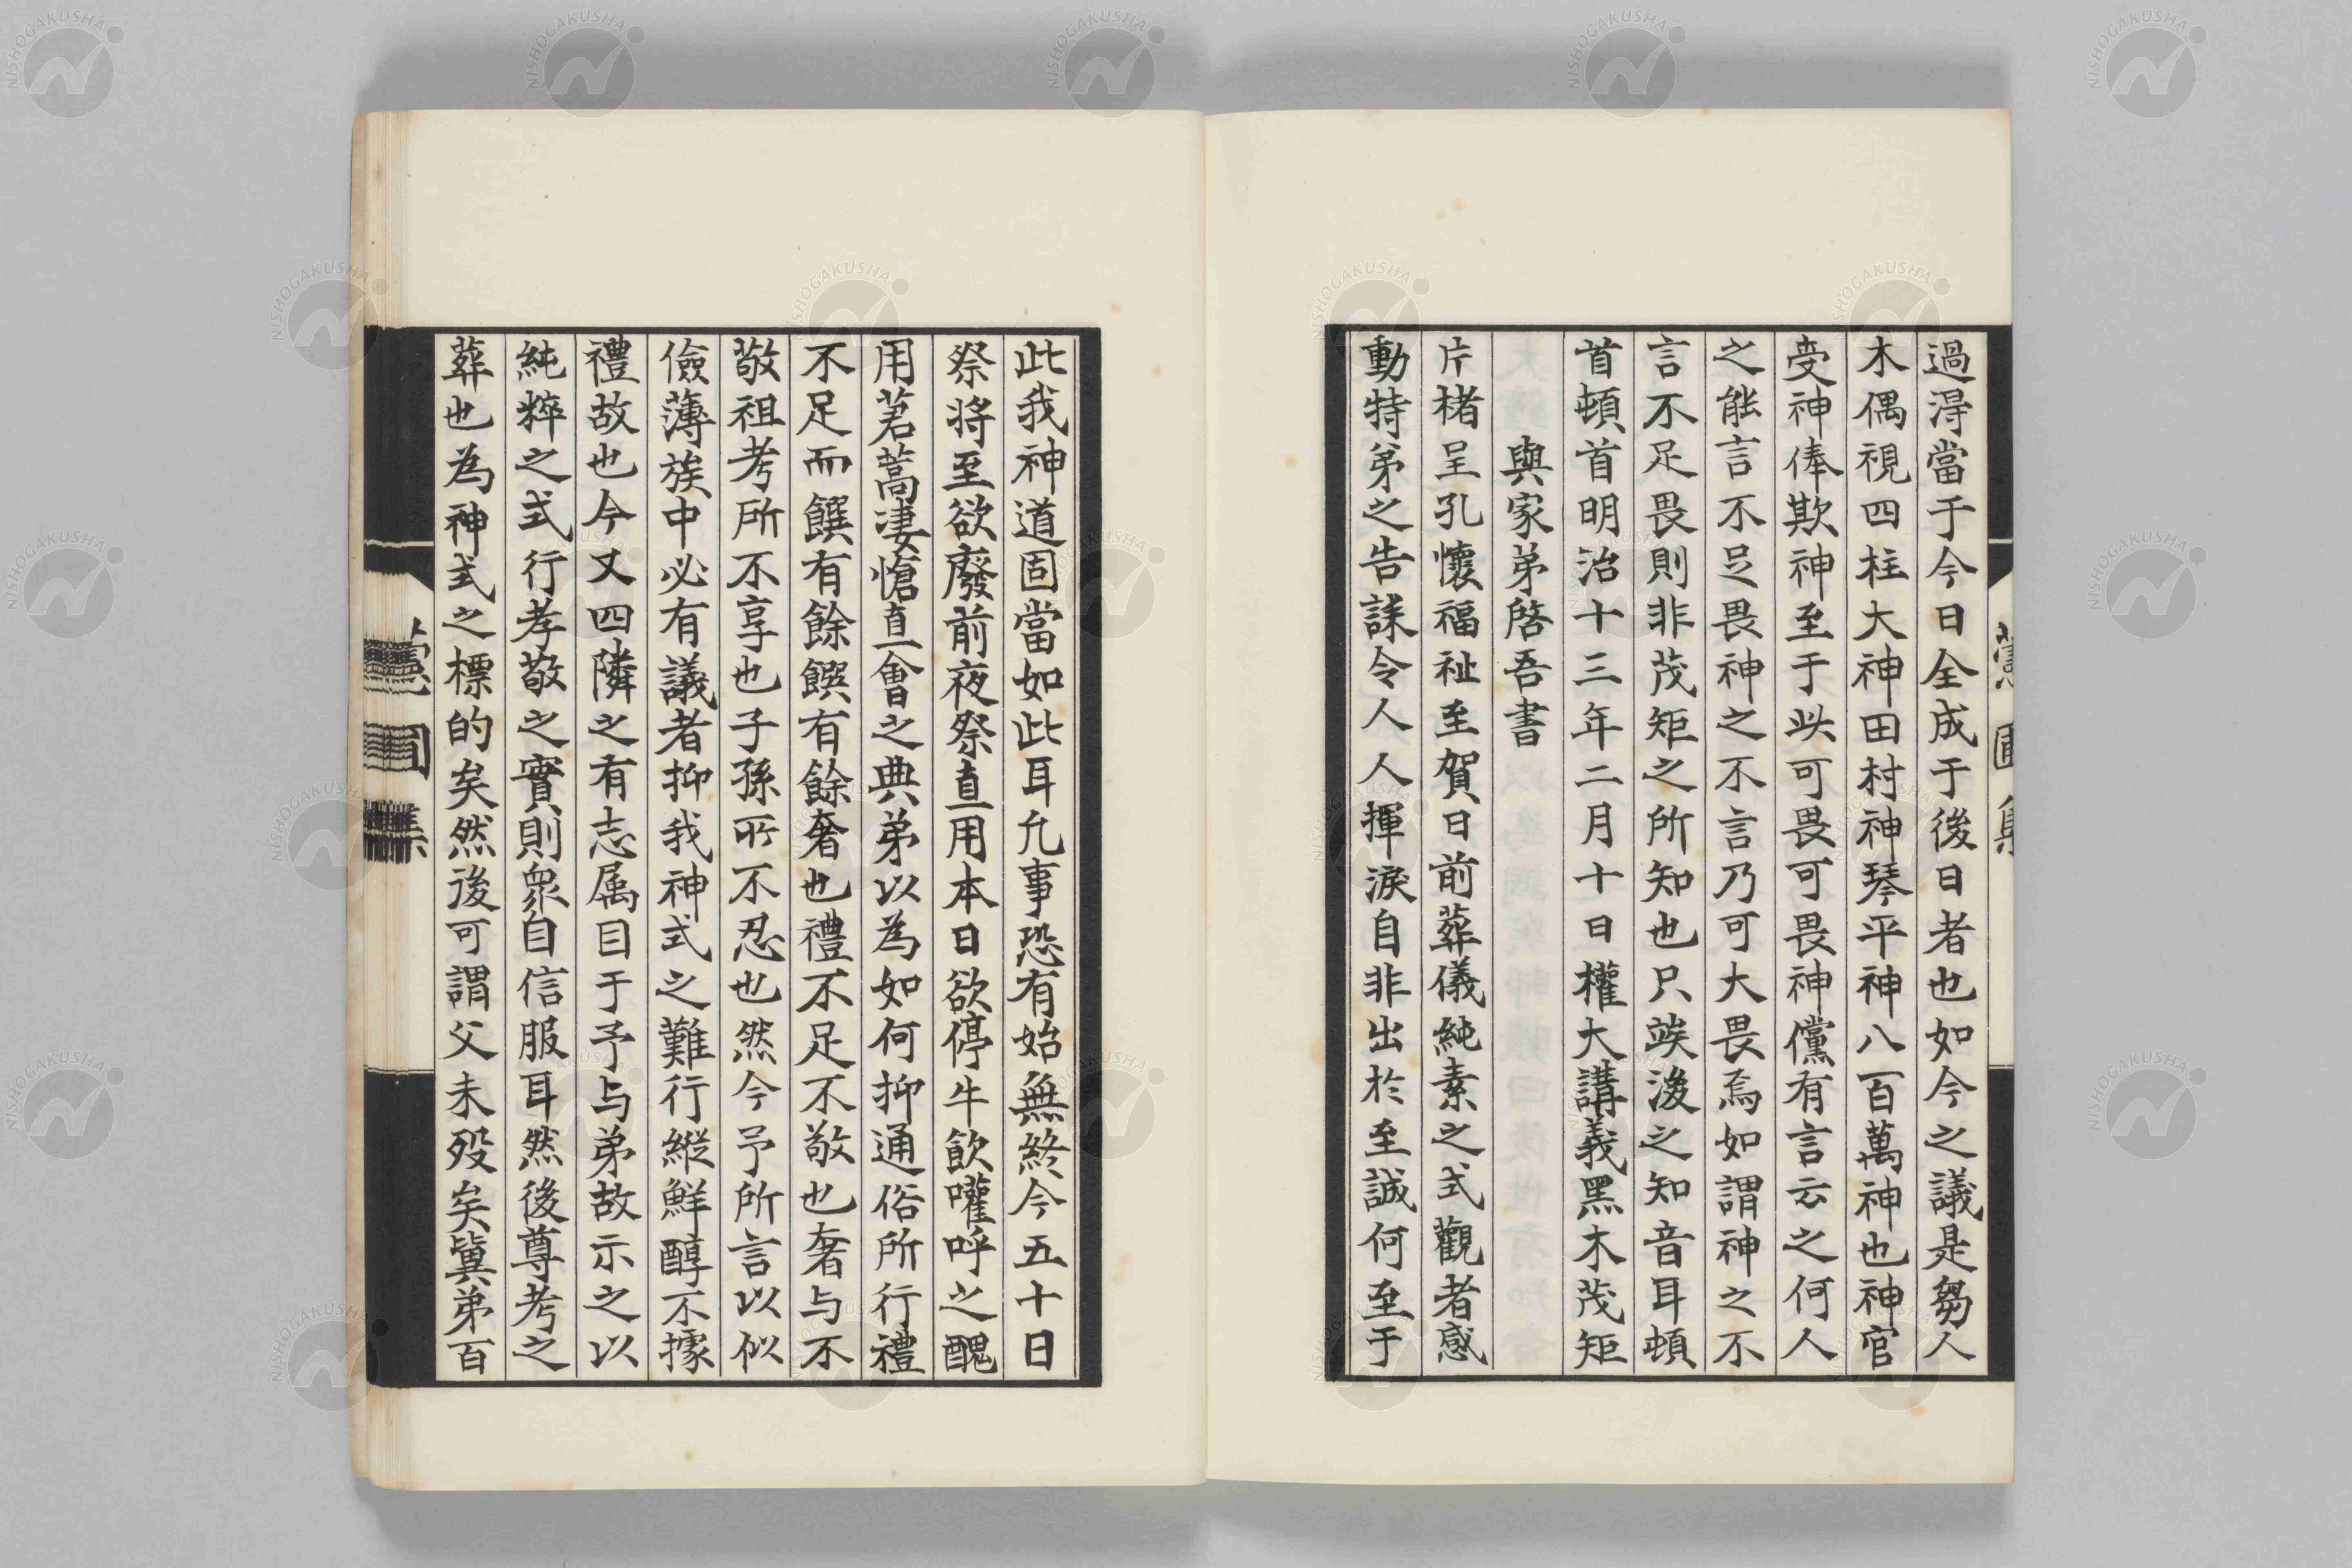 過淂當于今日全成于後日者也如今之議是芻人
木偶視四柱大神田村神琴平神八百萬神也神官
受神俸欺神至于此可畏可畏神儻有言云之何人
之能言不足畏神之不言乃可大畏焉如謂神之不
言不足畏則非茂矩之所知也只竢後之知音耳頓
首頓首明治十三年二月十日權大講義黑木茂矩
與家弟啓吾書
片楮呈孔懷福祉至賀日前葬儀純素之式觀者感
動特弟之告誄令人人揮淚自非出於至誠何至于
此我神道固當如此耳允事恐有始無終今五十日
祭將至欲廢前夜祭直用本日欲停牛飲嚾呼之醜
用焄蒿悽愴直會之典弟以為如何抑通俗所行禮
不足而饌有餘饌有餘奢也禮不足不敬也奢与不
敬祖考所不享也子孫所不忍也然今予所言以似
儉薄族中必有議者抑我神式之難行縱鮮醇不據
禮故也今又四隣之有志属目于予与弟故示之以
純粹之式行孝敬之實則衆自信服耳然後尊考之
葬也為神式之標的矣然後可謂父未歿矣冀弟百
NISHOGAKUSHA